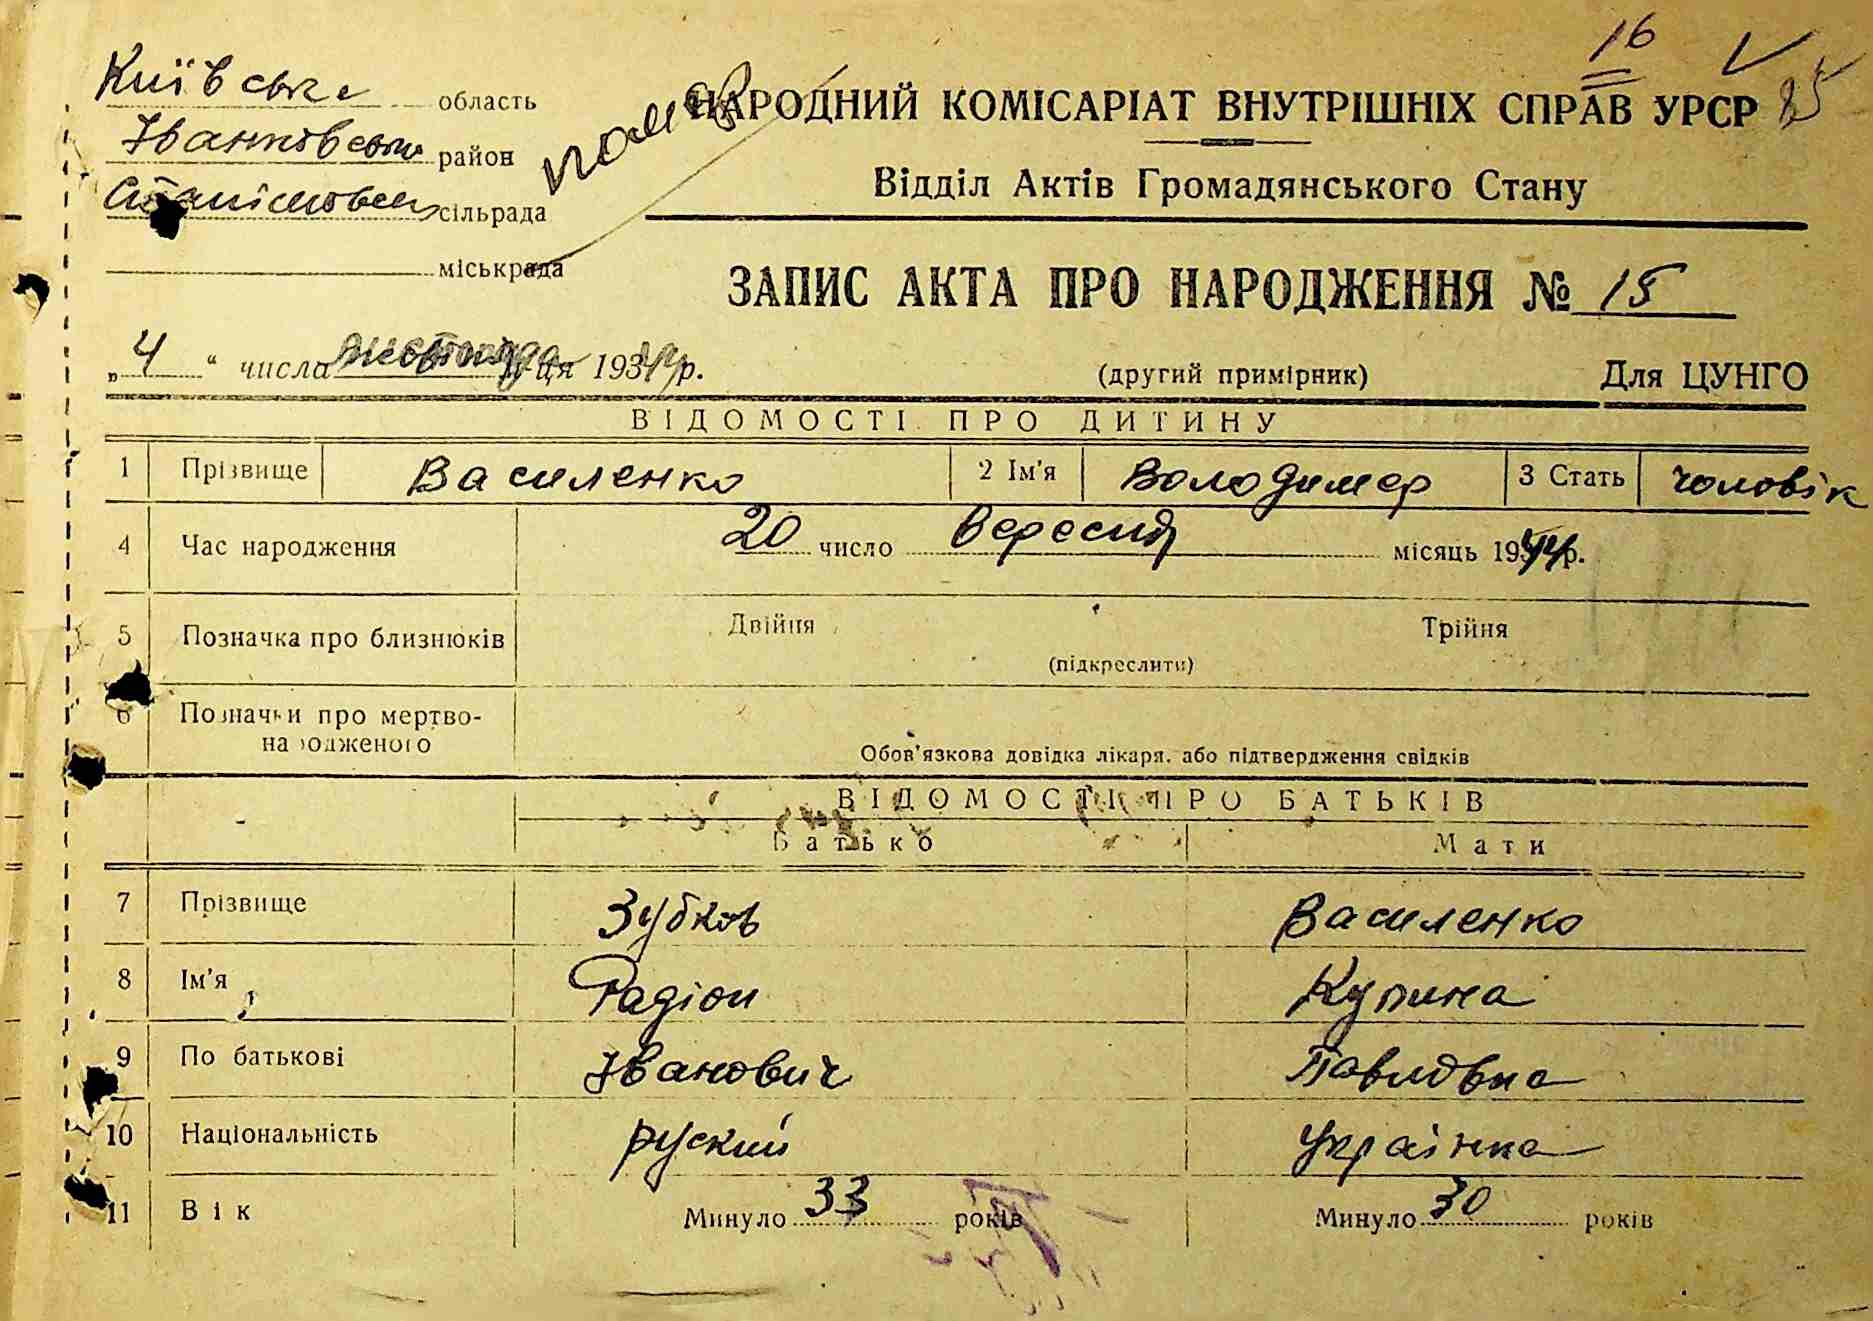 16
25
Київська область
Іванківськи район
сільрада
міськрада
НАРОДНИЙ КОМІСАРІАТ ВНУТРІШНІХ СПРАВ УРСР
Відділ Актів Громадянського Стану
ЗАПИС АКТА ПРО НАРОДЖЕННЯ № 15
„4“ числа місяця 1944 р.
(другий примірник)
Для ЦУНГО
ВІДОМОСТІ ПРО ДИТИНУ
1 Прізвище Василенко 2 Ім'я Володимер 3 Стать чоловік
4 Час народження 20 число Вересня місяць 1944 р.
5 Позначка про близнюків Двійня Трійня
(підкреслити)
6 Позначки про мертво-
народженого
Обов'язкова довідка лікаря, або підтвердження свідків
ВІДОМОСТІ ПРО БАТЬКІВ
Батько Мати
7 Прізвище Зубков Василенко
8 Ім'я Радіон Купина
9 По батькові Іванович Павловна
10 Національність руский українка
11 Вік Минуло 33 років Минуло 30 років